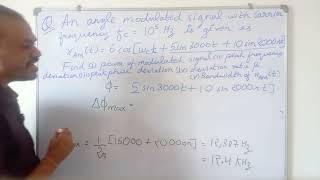 Q. An angle modulated signal with carrier
frequency fc = 10⁵ Hz is given as
x_AM(t) = 6 cos[ω_c t + 5 sin 3000t + 10 sin 2000πt]
Find i) power of modulated signal ii) peak freqn
deviation iii) peak phase deviation iv) deviation ratio &
v) Bandwidth of
φ = 5 sin 3000t + 10 sin 2000πt
Δφmax =
= 1/2π [15000 + 20000π] = 12,387 Hz
= 12.4 kHz